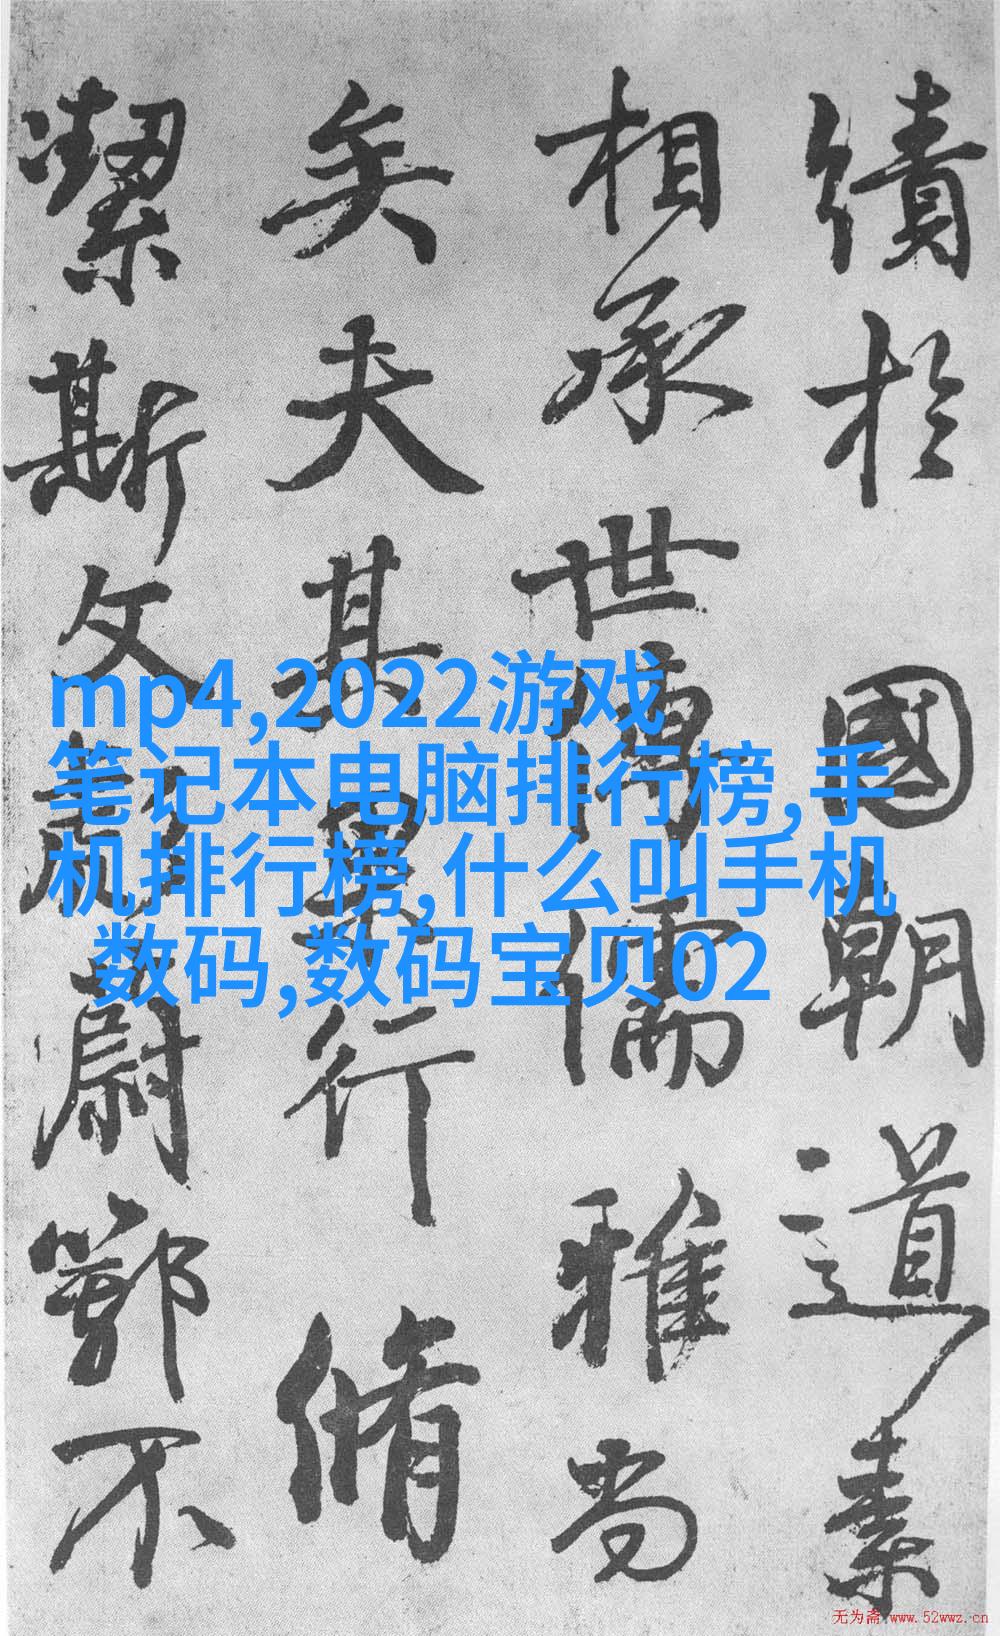 績於國朝道素
相承世傳儒雅尚
矣夫其果行脩
潔斯文彪蔚鄂不
mp4,2022游戏
笔记本电脑排行榜,手
机排行榜,什么叫手机
数码,数码宝贝02
无为斋 www.52wwz.cn